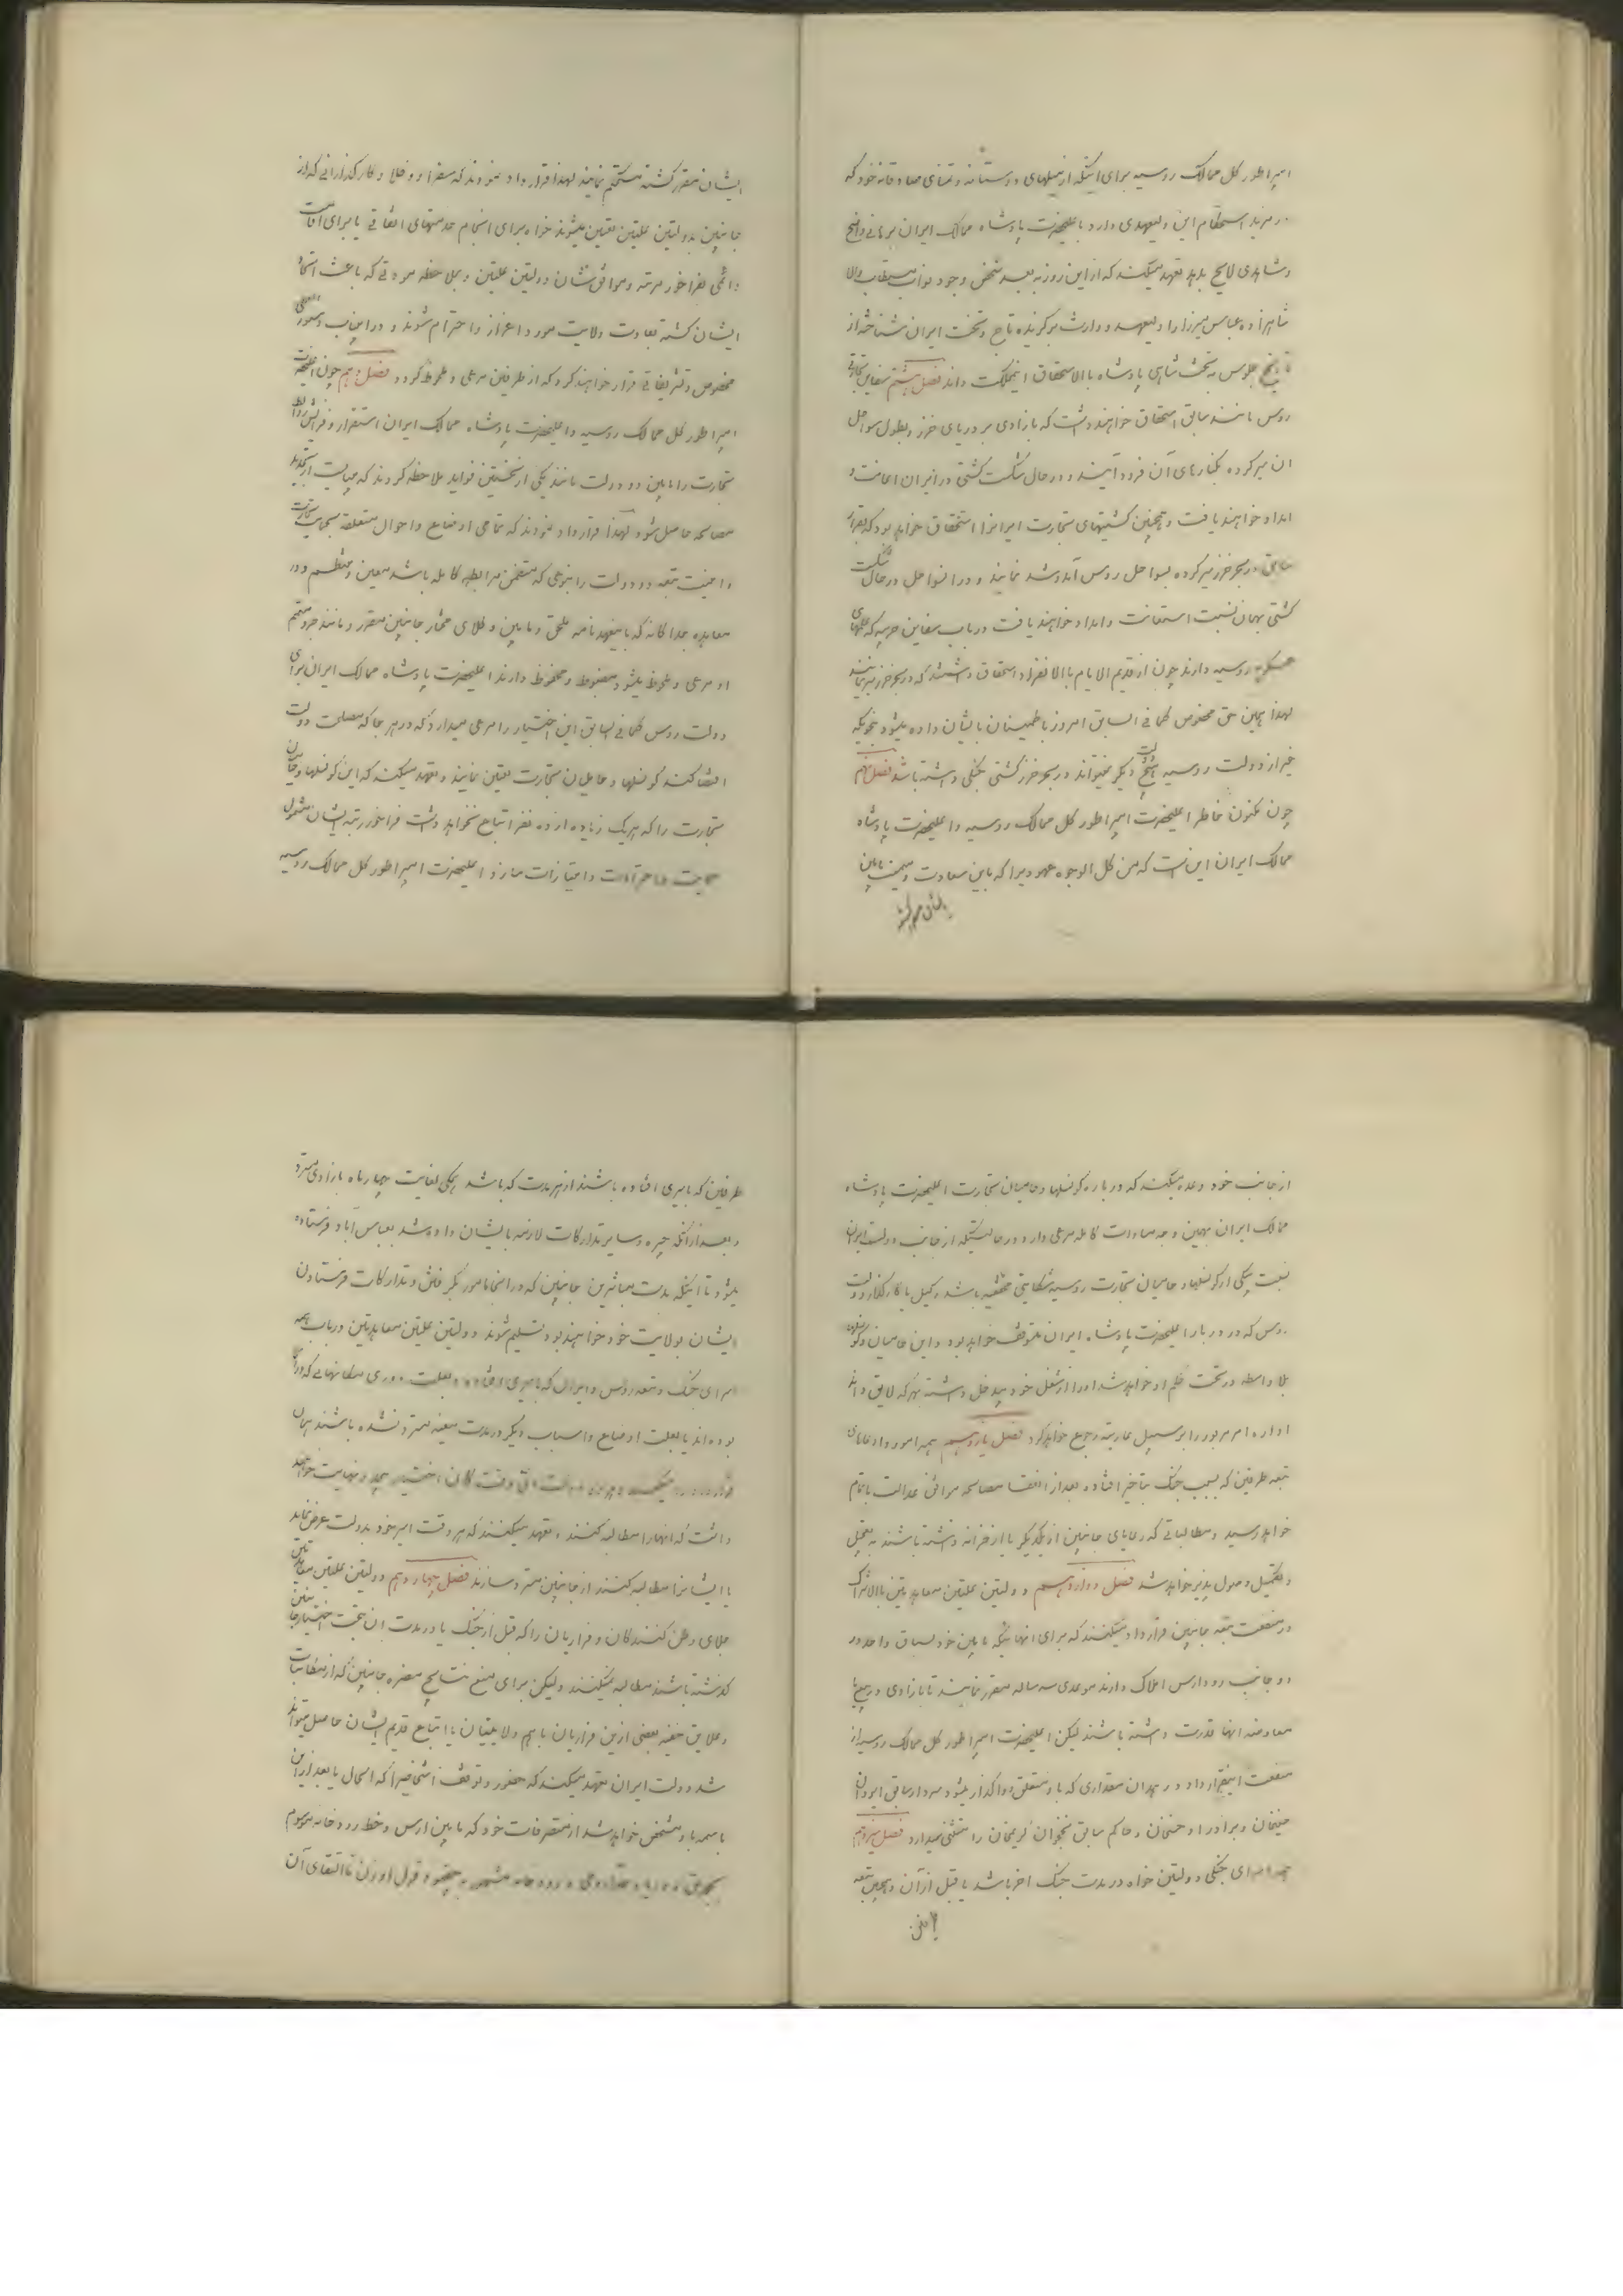 امپراطور کل ممالک روسیه برای اینکه از میلهای دوستانه و تمنای صادقانه خود که
در مزید استحکام این ولیعهدی دارد باعلیحضرت پادشاه ممالک ایران برهانی واضح
و شاهدی لایح بدهد تعهد میکند که از این روز به بعد شخص وجود نواب مستطاب والا
شاهزاده عباس میرزا را ولیعهد و وارث برگزیده تاج و تخت ایران شناخته از
تاریخ جلوس به تخت شاهی پادشاه بالاستحقاق اینمملکت داند فصل هشتم سفاین تجارتی
روس مانند سابق استحقاق خواهند داشت که بازادی بر دریای خزر و بطول سواحل
ان سیر کرده بکنارهای آن فرود آیند و در حال شکست کشتی در ایران اعانت و
امداد خواهند یافت و همچنین کشتیهای تجارت ایرانرا استحقاق خواهد بود که بقرار
سابق در بحر خزر سیر کرده بسواحل روس آمد و شد نمایند و در انسواحل در حال شکست
کشتی بهمان نسبت استعانت و امداد خواهند یافت در باب سفاین حربیه که علمهای
عسکریه روسیه دارند چون از قدیم الایام بالانفراد استحقاق داشتند که در بحر خزر سیر نمایند
لهذا همین حق مخصوص کما فی السابق امروز باطمینان بایشان داده میشود بنحویکه
غیر از دولت روسیه هیچ دولت دیگر نمیتواند در بحر خزر کشتی جنگی داشته باشد فصل نهم
چون مکنون خاطر اعلیحضرت امپراطور کل ممالک روسیه و اعلیحضرت پادشاه
ممالک ایران این است که من کل الوجوه عهودیرا که باین سعادت و میمنت مابین
ایشان مقرر گشته مستحکم نمایند لهذا قرارداد نمودند که سفرا و وکلا و کارگذارانی که از
جانبین بدولتین علیتین تعیین میشوند خواه برای انجام خدمتهای اتفاقی یا برای اقامت
دائمی بفراخور مرتبه و موافق شان دولتین علیتین و بملاحظه مودتی که باعث اتحاد
ایشان گشته بعادت ولایت مورد اعزاز و احترام شوند و در این باب دستورالعملی
مخصوص و تشریفاتی قرار خواهند کرد که از طرفین مرعی و ملحوظ گردد فصل دهم چون اعلیحضرت
امپراطور کل ممالک روسیه و اعلیحضرت پادشاه ممالک ایران استقرار و افزایش روابط
تجارت را مابین دو دولت مانند یکی از نخستین فواید ملاحظه کردند که میبایست از تجدید
مصالحه حاصل شود لهذا قرارداد نمودند که تمامی اوضاع و احوال متعلقه بحمایت تجارت
و امنیت تبعه دو دولت را بنوعی که متضمن مرابطه کامله باشد معین و منتظم و در
معاهده جداگانه که باینعهدنامه ملحق و مابین وکلای مختار جانبین مقرر و مانند جزو متمم
او مرعی و ملحوظ میشود مضبوط و محفوظ دارند اعلیحضرت پادشاه ممالک ایران برای
دولت روس کما فی السابق این اختیار را مرعی میدارد که در هر جا که مصلحت دولت
اقتضا کند کونسلها و حامیان تجارت تعیین نمایند و تعهد میکند که این کونسلها و حامیان
تجارت را که هریک زیاده از ده نفر اتباع نخواهد داشت فراخور رتبه ایشان مشمول
حمایت و احترامات و امتیازات سازد و اعلیحضرت امپراطور کل ممالک روسیه
از جانب خود وعده میکند که درباره کونسلها و حامیان تجارت اعلیحضرت پادشاه
ممالک ایران بهمین وجه مساوات کامله مرعی دارد در حالتیکه از جانب دولت ایران
نسبت بیکی از کونسلها و حامیان تجارت روسیه شکایتی محققه باشد وکیل یا کارگذار دولت
روس که در دربار اعلیحضرت پادشاه ایران متوقف خواهد بود و این حامیان و کونسلها
بلا واسطه در تحت حکم او خواهد شد او را از شغل خود بیدخل داشته بهر که لایق داند
اداره امر مزبور را بر سبیل عاریه رجوع خواهد کرد فصل یازدهم همه امور و ادعاهای
تبعه طرفین که بسبب جنگ بتاخیر افتاده بعد از انعقاد مصالحه موافق عدالت باتمام
خواهد رسید و مطالباتی که رعایای جانبین از یکدیگر یا از خزانه داشته باشند به تعجیل
و تکمیل وصول پذیر خواهد شد فصل دوازدهم دولتین علیتین معاهدتین بالاشتراک
در منفعت تبعه جانبین قرارداد میکنند که برای انهائیکه مابین خود بسیاق واحد در
دو جانب رود ارس املاک دارند موعدی سه ساله مقرر نمایند تا بازادی در بیع یا
معاوضه انها قدرت داشته باشند لیکن اعلیحضرت امپراطور کل ممالک روسیه از
منفعت اینقرارداد در همه ان مقداری که باو متعلق و واگذار میشود سردار سابق ایروان
حسینخان و برادر او حسنخان و حاکم سابق نخجوان کریمخان را مستثنی میدارد فصل سیزدهم
همه اسرای جنگی دولتین خواه در مدت جنگ اخر باشد یا قبل از آن و همچنین تبعه
طرفین که باسیری افتاده باشند از هر مدت که باشد همگی بغایت چهار ماه بازادی مسترد
و بعد از آنکه جیره و سایر تدارکات لازمه بایشان داده شد بعباس آباد فرستاده
میشود تا اینکه بدست مباشرین جانبین که در انجا مامور بگرفتن و تدارکات فرستادن
ایشان بولایت خود خواهند بود تسلیم شوند دولتین علیتین معاهدتین در باب همه
اسرای جنگ و تبعه روس و ایران که باسیری افتاده و بعلت دوری مکانهایی که در آنجا
بوده اند یا بعلت اوضاع و اسباب دیگر در مدت معینه مسترد نشده باشند همان
داشت که انها را مطالبه کنند و تعهد میکنند که هر وقت اسیر خود بدولت عرض نماید
یا ایشانرا مطالبه کنند از جانبین مسترد سازند فصل چهاردهم دولتین علیتین معاهدتین
جلای وطن کنندگان و فراریان را که قبل از جنگ یا در مدت ان بتحت اختیار جانبین
گذشته باشند مطالبه نمیکنند ولیکن برای منع نتایج مضره جانبین که از مکاتبات
و علایق خفیه بعضی از این فراریان با هم ولایتیان یا اتباع قدیم ایشان حاصل میتواند
شد دولت ایران تعهد میکند که حضور و توقف اشخاصیرا که الحال یا بعد از این
باسمه باو مشخص خواهد شد از متصرفات خود که مابین ارس و خط رودخانه مرسوم